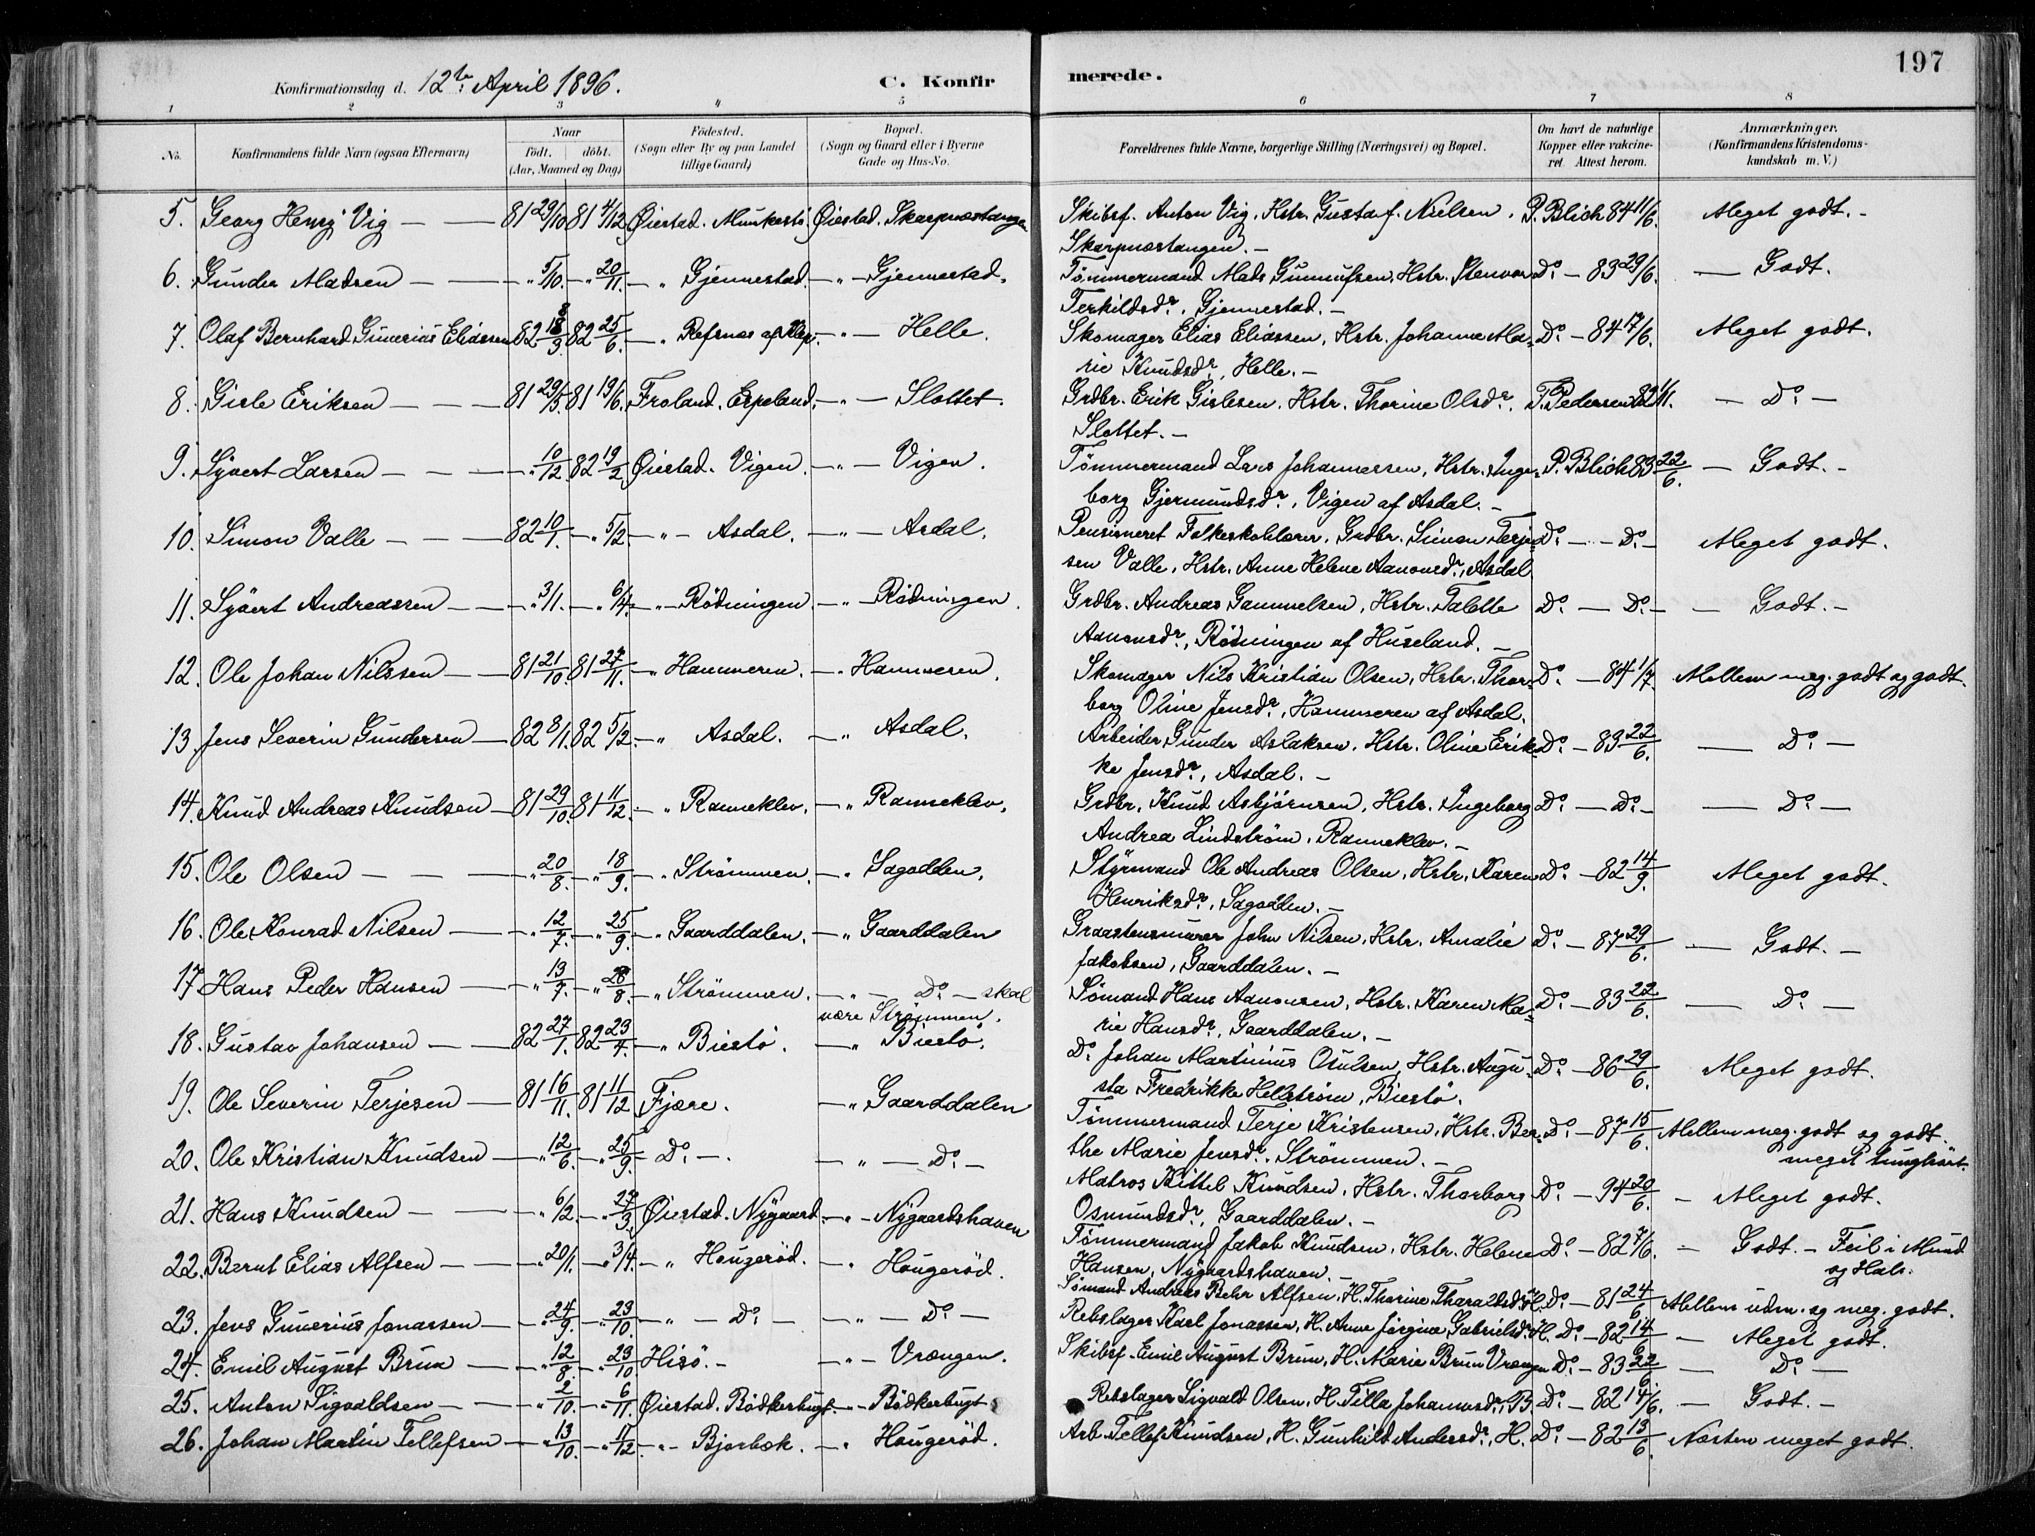 197
Konfirmationsdag d. 12te April 1896. C. Konfirmerede.
1 2 3 4 5 6 7 8
No. Konfirmandens fulde Navn (ogsaa Efternavn) Naar født, døbt. (Aar, Maaned og Dag) Fødested. (Sogn eller By og paa Landet tillige Gaard) Bopæl. (Sogn og Gaard eller i Byerne Gade og Hus-No. Forældrenes fulde Navne, borgerlige Stilling (Næringsvei) og Bopæl. Om havt de naturlige Kopper eller vakcineret. Attest herom. Anmærkninger. (Konfirmandens Kristendomskundskab m. V.)
5. Georg Henrÿ Vig — 81 29/10 81 4/12 Øiestad. Munkestø. Øiestad. Skarpnæstangen Skibsf. Anton Vig, Hstr. Gustaf. Nielsen. P. Blich 84 11/6. Meget godt. -
Skarpnæstangen. -
6. Gunder Madsen — — " 5/10 - " 20/11. - " Gjennestad - " - Gjennestad. Tømmermand Mads Gunnufsen, Hstr. Stenvor Do. - 83 29/6. — Godt.
Terkildsdr., Gjennestad. -
7. Olaf Bernhard Gunerius Eliassen 82 18/3. 82 25/6. - " Refsnes af Klep. - " - Helle. Skomager Elias Eliassen, Hstr. Johanne Ma- Do. - 84 17/6. Meget godt.
rie Knudsdr., Helle. -
8. Gisle Eriksen — — 81 29/3. 81 19/6. Froland. Espeland. - " - Slottet. Grdbr. Erik Gislesen. Hstr. Thorine Olsdr. T. Pedersen 82 1/11. — Do. -
Slottet. -
9. Syvert Larsen — — " 10/12. 82 19/2. Øiestad. Vigen. - " - Vigen. Tømmermand Lars Johannessen, Hstr. Inge- P. Blich 83 22/6. - Godt. -
borg Gjermundsdr., Vigen af Asdal. -
10. Simon Valle — — 82 10/1. - " 5/2 - " - Asdal. - " - Asdal. Pensioneret Folkeskolelærer, Grdbr. Simon Terje- Do. - - Do. - Meget godt.
sen Valle, Hstr. Anne Helene Aanonsdr., Asdal
11. Syvert Andreassen — — " 3/1. - " 6/4. - " - Rødningen. - " - Rødningen. Grdbr. Andreas Gammelsen, Hstr. Talette Do. — Do. - — Godt. -
Aanonsdr., Rødningen af Huseland. -
12. Ole Johan Nilssen — 81 21/10. 81 27/11. - " Hammeren. - " Hammeren. Skomager Nils Kristian Olsen, Hstr. Thor- Do. - 84 1/7. Mellem meg. godt og godt.
borg Oline Jensdr., Hammeren af Asdal.
13. Jens Severin Gundersen — 82 8/1. 82 5/2. - " Asdal. - " Asdal. Arbeider Gunder Aslaksen. Hstr. Oline Erik- Do. - 83 22/6. — Do. -
ke Jensdr., Asdal. -
14. Knud Andreas Knudsen — 81 29/10. 81 11/12. - " Ranneklev. - " Ranneklev. Grdbr. Knud Asbjørnsen, Hstr. Ingeborg Do. — Do. - — Do. -
Andrea Lindstrøm. Ranneklev. -
15. Ole Olsen — — — " 20/8. - " 18/9. - " Strømmen. - " Sagodden. Styrmand Ole Andreas Olsen, Hstr. Karen Do. - 82 14/9. Meget godt.
Henriksdr., Sagodden. -
16. Ole Konrad Nilsen — — " 12/7. - " 25/9. - " Gaarddalen. - " Gaarddalen Graastensmurer John Nilsen, Hstr. Amalie Do. - 87 29/6. — Godt. -
Jakobsen, Gaarddalen. -
17. Hans Peder Hansen — — " 13/7. - " 28/8. - " Strømmen. - " - Do. - skal være Strømmen. Sømand Hans Aanonsen, Hstr. Karen Ma- Do. - 83 22/6. — Do. -
rie Hansdr., Gaarddalen. -
18. Gustav Johansen — — 82 27/1. 82 23/4. - " Biestø. - " Biestø. Do. Johan Martinius Osulsen, Hstr. Augu- Do. - 86 29/6. Meget godt.
sta Fredrikke Hellstrøm, Biestø.
19. Ole Severin Terjesen — 81 16/11. 81 11/12 Fjære. - " Gaarddalen Tømmermand Terje Kristensen, Hstr. Ber- Do. - 87 15/6. Mellem meg. godt og godt.
the Marie Jensdr., Strømmen. - meget tunghørt.
20. Ole Kristian Knudsen — " 12/6. - " 25/9. Do. -. - " - Do. - Matros Kittel Knudsen, Hstr. Thorborg Do. - 94 20/6. - Meget godt.
Osmundsdr., Gaarddalen. -
21. Hans Knudsen — — " 6/2. - " 27/3. Øiestad. Nygaard. - " - Nygaardshaven Tømmermand Jakob Knudsen, Hstr. Helene Do. - 82 7/6. - Godt. - Feil i Mund og Hals.
Hansen, Nygaardshaven. -
22. Bernt Elias Alfsen — — " 20/1. - " 3/4. - " Hougerød. - " Hougerød. Sømand Andreas Behr Alfsen, H. Thorine Tharaldsdr. H. Do. - 81 24/6 Mellem udm. og meg. godt.
23. Jens Gunerius Jonassen — " 24/9. - " 23/10. - " - Do. - - " - Do. - Rebslager Karl Jonassen, H. Anne Jørgine Gabrielsdr. H. Do. - 82 14/6 - Meget godt.
24. Emil August Brun — — " 12/8. - " 23/10. Hisø. - - " - Vrængen. Skibsf. Emil August Brun, H. Marie Brun Vrængen Do. - 83 22/6 — Do. -
25. Anton Sigvaldsen — — " 2/10. - " 6/11. Øiestad. Bødkerbugt. - " Bødkerbugt Rebslager Sigvald Olsen, H. Tilla Johannesdr., B. Do. - 82 14/6. — Godt. -
26. Johan Martin Tellefsen — " 13/10 - " 11/12 - " - Bjorbæk. - " Hougerød. Arb. Tellef Knudsen, H. Gunhild Andersdr., H. Do. - 82 13/6. Næsten meget godt.